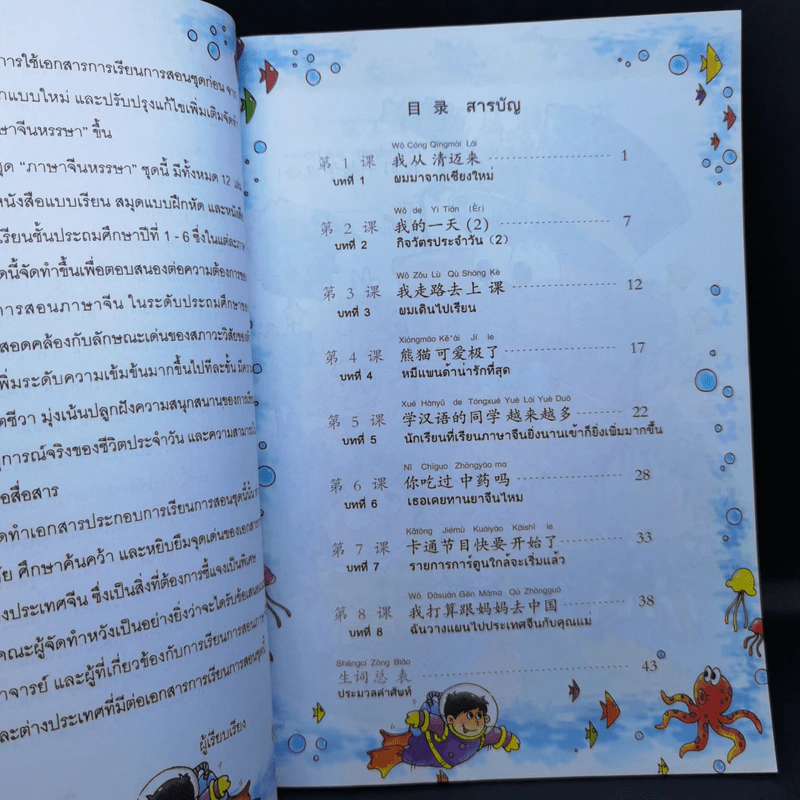 การใช้เอกสารการเรียนการสอนชุดก่อน จาก
กแบบใหม่ และปรับปรุงแก้ไขเพิ่มเติมจัดทำ
าษาจีนหรรษา" ขึ้น
ชุด "ภาษาจีนหรรษา" ชุดนี้ มีทั้งหมด 12
หนังสือแบบเรียน สมุดแบบฝึกหัด และหนังสือ
เรียนชั้นประถมศึกษาปีที่ 1 - 6 ซึ่งในแต่ละภาค
ดนี้จัดทำขึ้นเพื่อตอบสนองต่อความต้องการของ
การสอนภาษาจีน ในระดับประถมศึกษาของ
สอดคล้องกับลักษณะเด่นของสภาวะวิสัยของ
พิ่มระดับความเข้มข้นมากขึ้นไปทีละชั้น มีความ
ตชีวา มุ่งเน้นปลูกฝังความสนุกสนานของการ
ุการณ์จริงของชีวิตประจำวัน และความสามารถ
อสื่อสาร
ดทำเอกสารประกอบการเรียนการสอนชุดนี้นั้น
ัย ศึกษาค้นคว้า และหยิบยืมจุดเด่นของเอกสาร
งประเทศจีน ซึ่งเป็นสิ่งที่ต้องการชี้แจงเป็นพิเศษ
คณะผู้จัดทำหวังเป็นอย่างยิ่งว่าจะได้รับข้อเสนอ
าจารย์ และผู้ที่เกี่ยวข้องกับการเรียนการสอนภาษา
ละต่างประเทศที่มีต่อเอกสารการเรียนการสอนชุดนี้
ผู้เรียบเรียง
目 录 สารบัญ
Wǒ Cóng Qīngmài Lái
第 1 课 我从 清迈来 1
บทที่ 1 ผมมาจากเชียงใหม่
Wǒ de Yì Tiān (Èr)
第 2 课 我的一天 (2) 7
บทที่ 2 กิจวัตรประจำวัน (2)
Wǒ Zǒu Lù Qù Shàng Kè
第 3 课 我走路去上 课 12
บทที่ 3 ผมเดินไปเรียน
Xióngmāo Kě'ài Jí le
第 4 课 熊猫 可爱极了 17
บทที่ 4 หมีแพนด้าน่ารักที่สุด
Xué Hànyǔ de Tóngxué Yuè Lái Yuè Duō
第 5 课 学汉语的同学 越来越多 22
บทที่ 5 นักเรียนที่เรียนภาษาจีนยิ่งนานเข้าก็ยิ่งเพิ่มมากขึ้น
Nǐ Chīguo Zhōngyào ma
第 6 课 你吃过 中药吗 28
บทที่ 6 เธอเคยทานยาจีนไหม
Kǎtōng Jiémù Kuàiyào Kāishǐ le
第 7 课 卡通节目快要 开始了 33
บทที่ 7 รายการการ์ตูนใกล้จะเริ่มแล้ว
Wǒ Dǎsuàn Gēn Māma Qù Zhōngguó
第 8 课 我打算跟妈妈去中国 38
บทที่ 8 ฉันวางแผนไปประเทศจีนกับคุณแม่
Shēngcí Zǒng Biǎo
生词总 表 43
ประมวลคำศัพท์